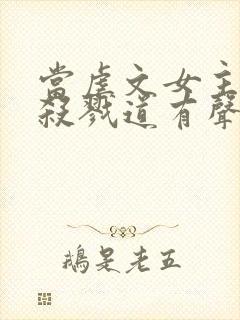 當虐文女主
殺戮道有聲
鵝是老五